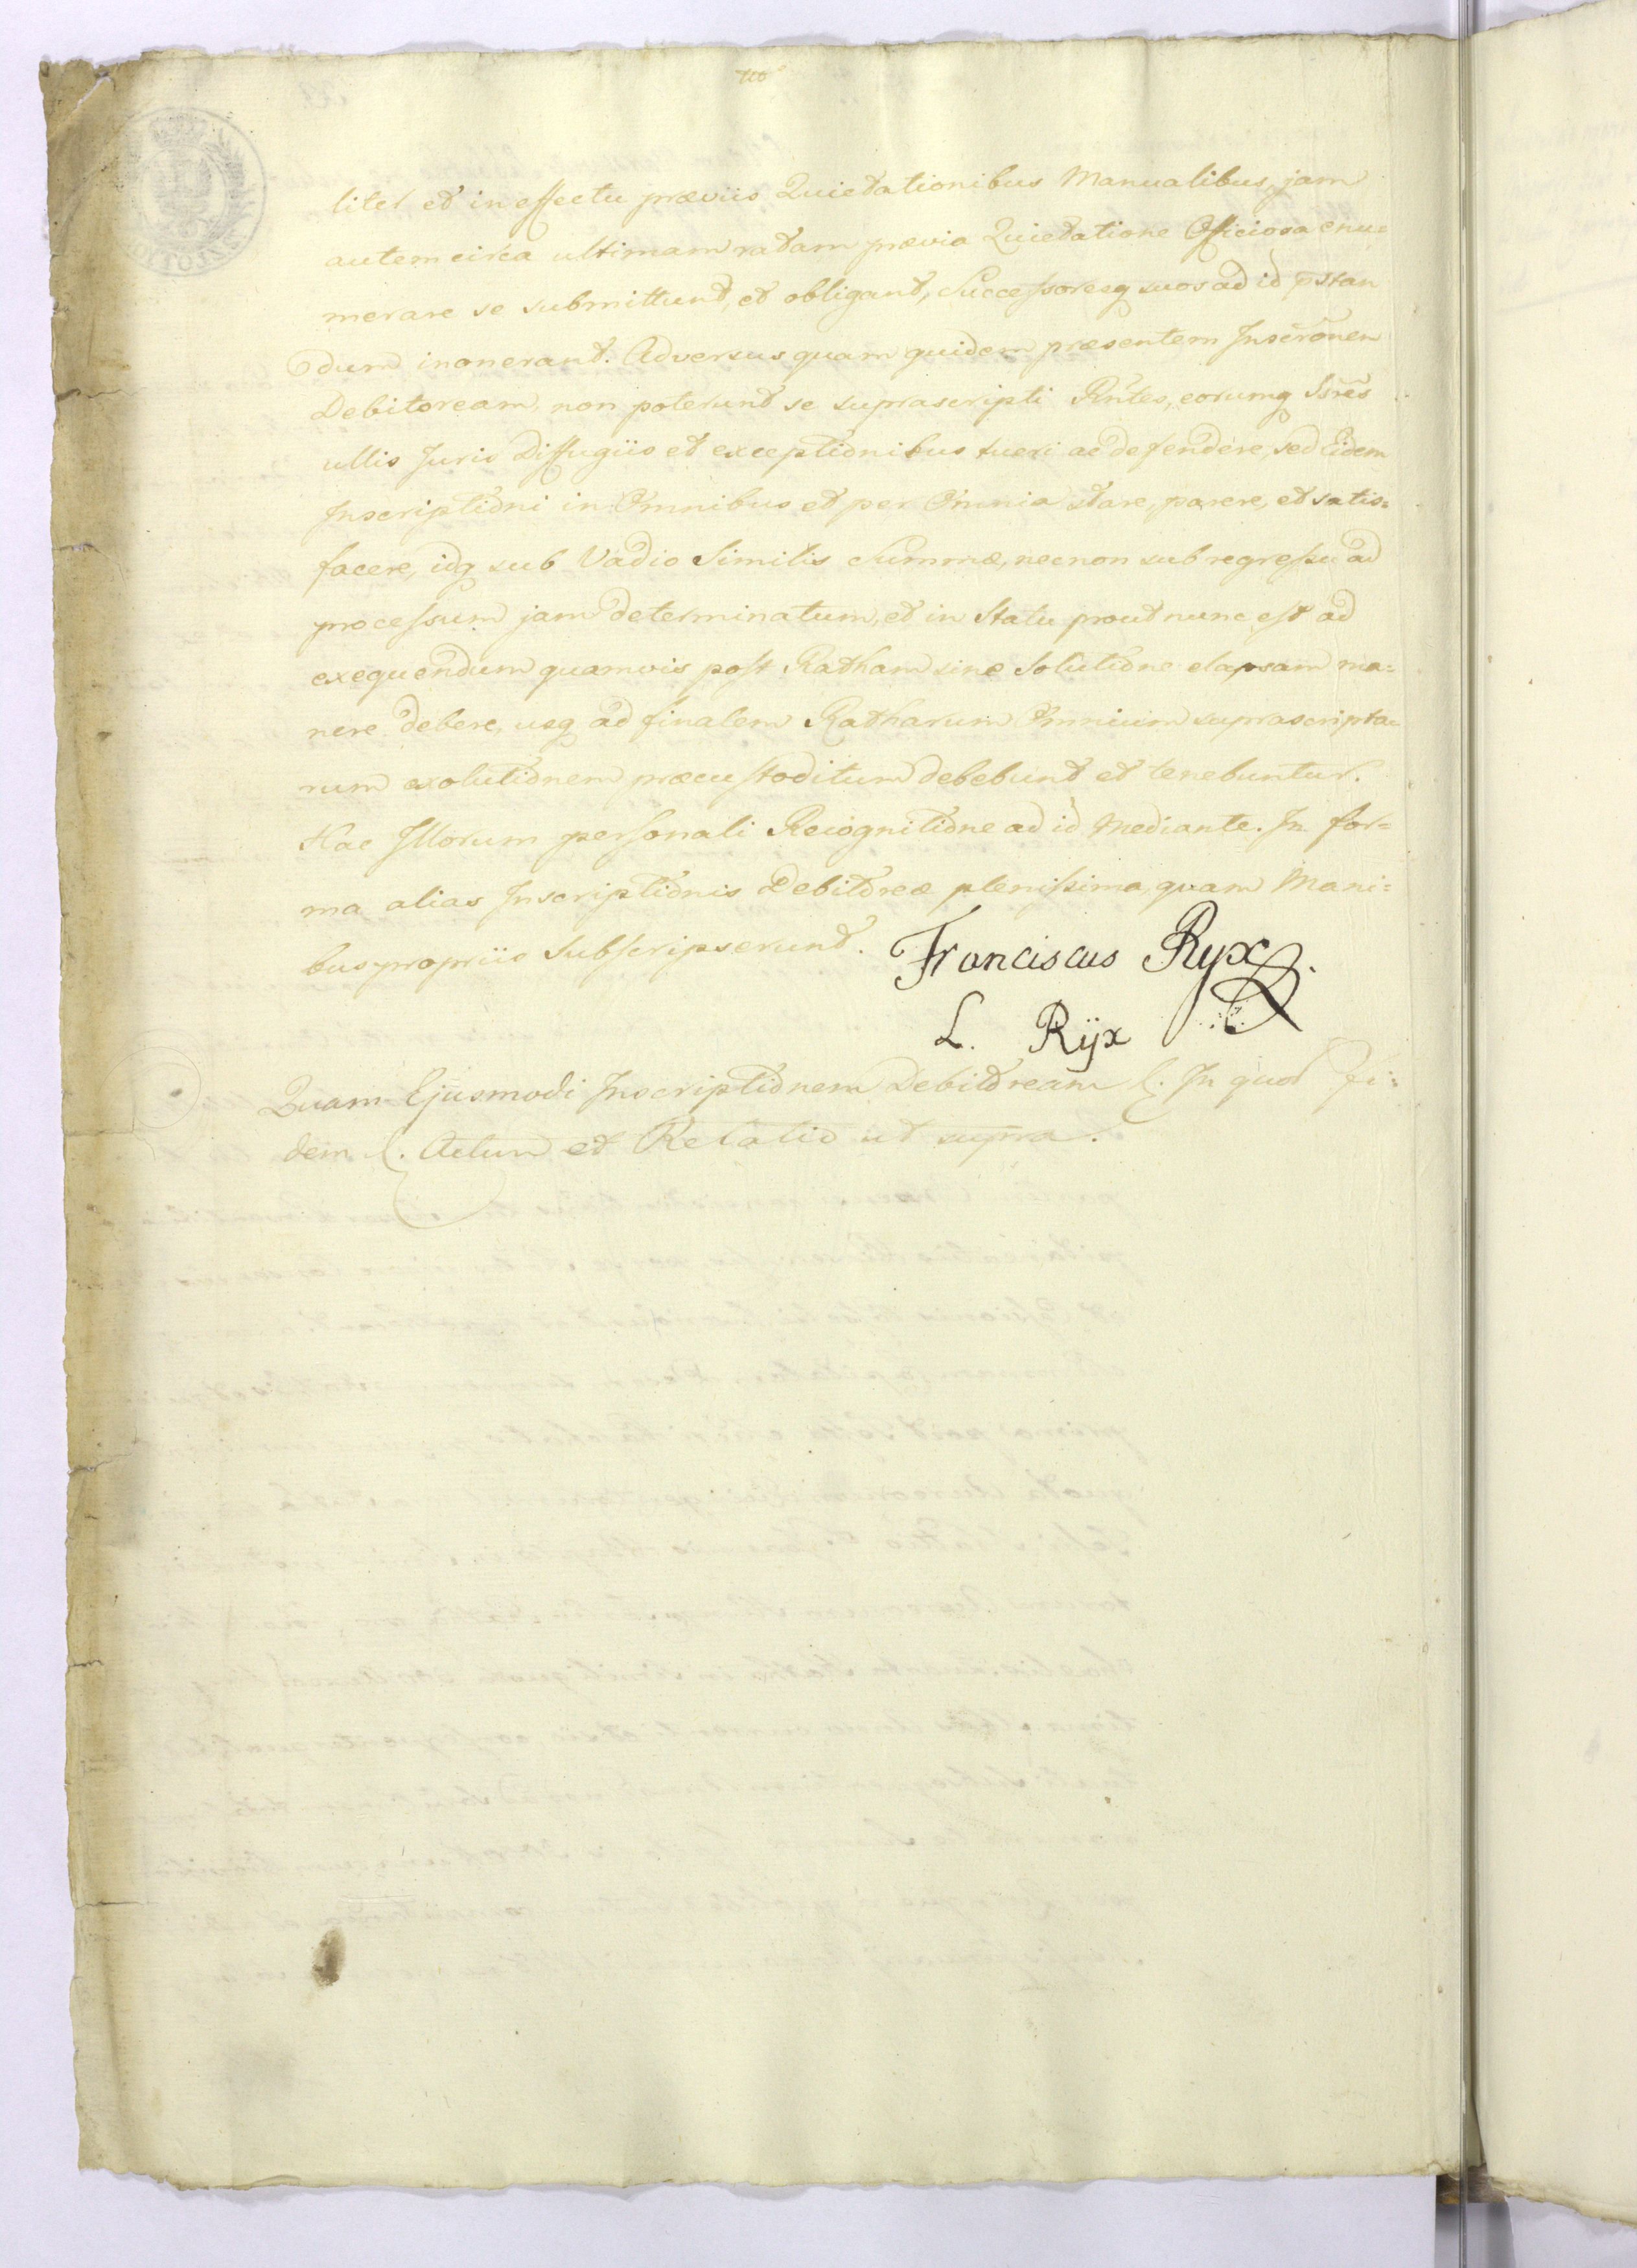 liter et in effectu præviis Quietationibus Manualibus, jam
autem circa ultimam ratam prævia Quietatione Officiosa enu=
merare se submittunt, et obligant, Successoresq suos ad id pstan
dum inonerant. Adversus quam quidem præsentem Inscrõnem
Debitoream, non poterunt se suprascripti Rntes, eorumq Ssres
ullis Juris Diffugiis et exceptionibus tueri ac defendere, sed Eidem
Inscriptioni in Omnibus et per Omnia stare, parere, et satis=
facere, idq sub Vadio Similis Summæ, necnon sub regressu ad
processum jam determinatum, et in Statu prout nunc est ad
exequendum quamvis post Ratham sine Solutione elapsam ma=
nere debere, usq ad finalem Ratharum Omnium suprascripta=
rum exolutionem præcustoditum debebunt et tenebuntur.
Hac Illorum personali Recognitione ad id Mediante. In for=
ma alias Inscriptionis Debitoreæ plenissima, quam Mani=
bus propriis Subscripserunt.
Franciscus Ryx
L. Rÿx
Quam Ejusmodi Inscriptionem Debitoream In quor Fi=
dem Actum et Relatio ut supra.